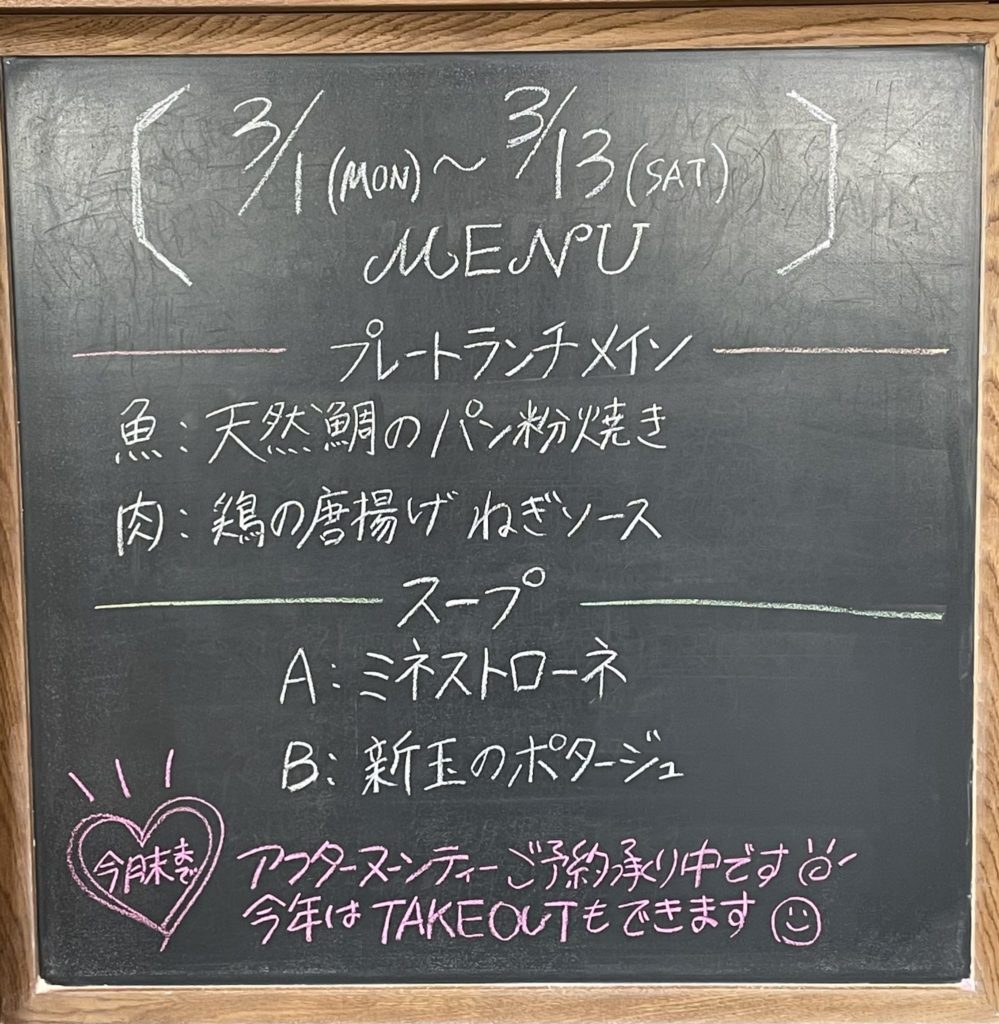 3/1(MON)～3/13(SAT)
MENU
プレートランチメイン
魚:天然鯛のパン粉焼き
肉:鶏の唐揚げ ねぎソース
スープ
A:ミネストローネ
B:新玉のポタージュ
今月末まで
アフターヌーンティーご予約承り中です
今年はTAKEOUTもできます